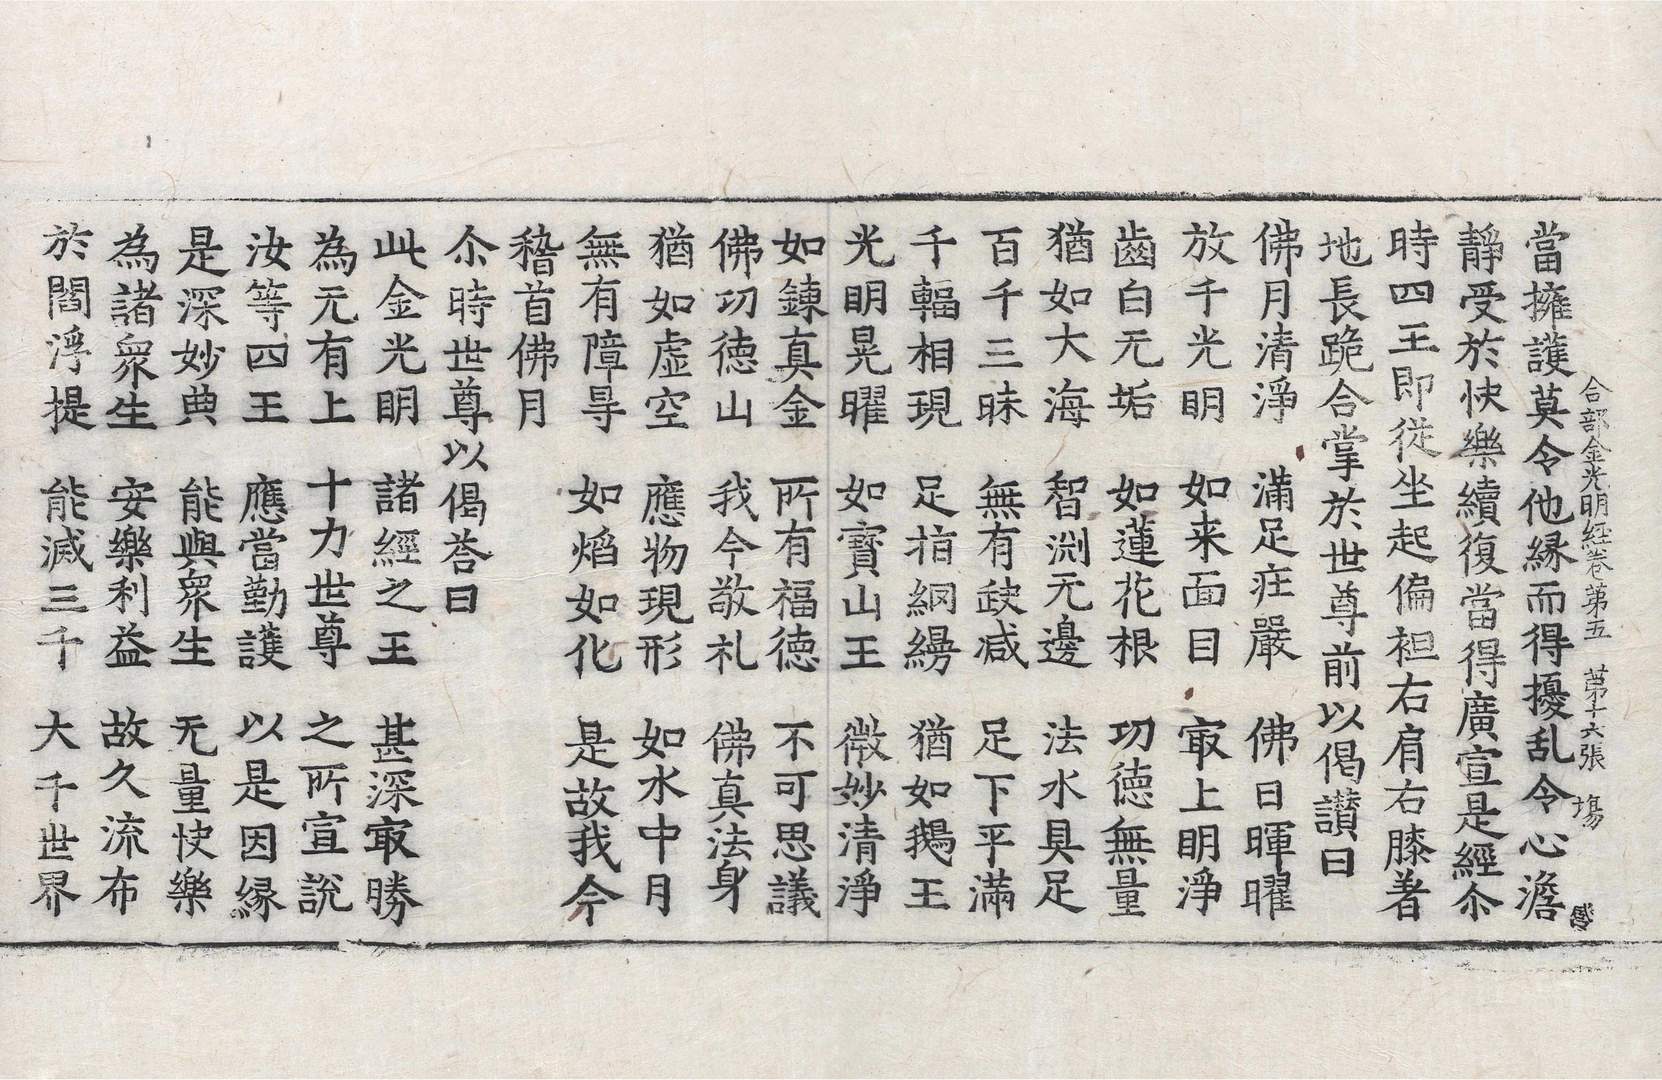 合部金光明経卷第五 第十六張 塲
當擁護莫令他縁而得擾乱令心澹
靜受於快樂續復當得廣宣是經尒
時四王即從坐起偏袒右肩右膝著
地長跪合掌於世尊前以偈讃曰
佛月清淨 滿足莊嚴 佛日暉曜
放千光明 如来面目 㝡上明淨
齒白无垢 如蓮花根 功德無量
猶如大海 智渕无邊 法水具足
百千三昧 無有𡙇減 足下平滿
千輻相現 足指網縵 猶如鵝王
光明晃曜 如寶山王 微妙清淨
如鍊真金 所有福德 不可思議
佛功德山 我今敬礼 佛真法身
猶如虚空 應物現形 如水中月
無有障㝵 如焰如化 是故我今
稽首佛月
尒時世尊以偈荅曰
此金光明 諸經之王 甚深㝡勝
為无有上 十力世尊 之所宣說
汝等四王 應當勤護 以是因縁
是深妙典 能與衆生 无量快樂
為諸衆生 安樂利益 故久流布
於閻浮提 能滅三千 大千世界